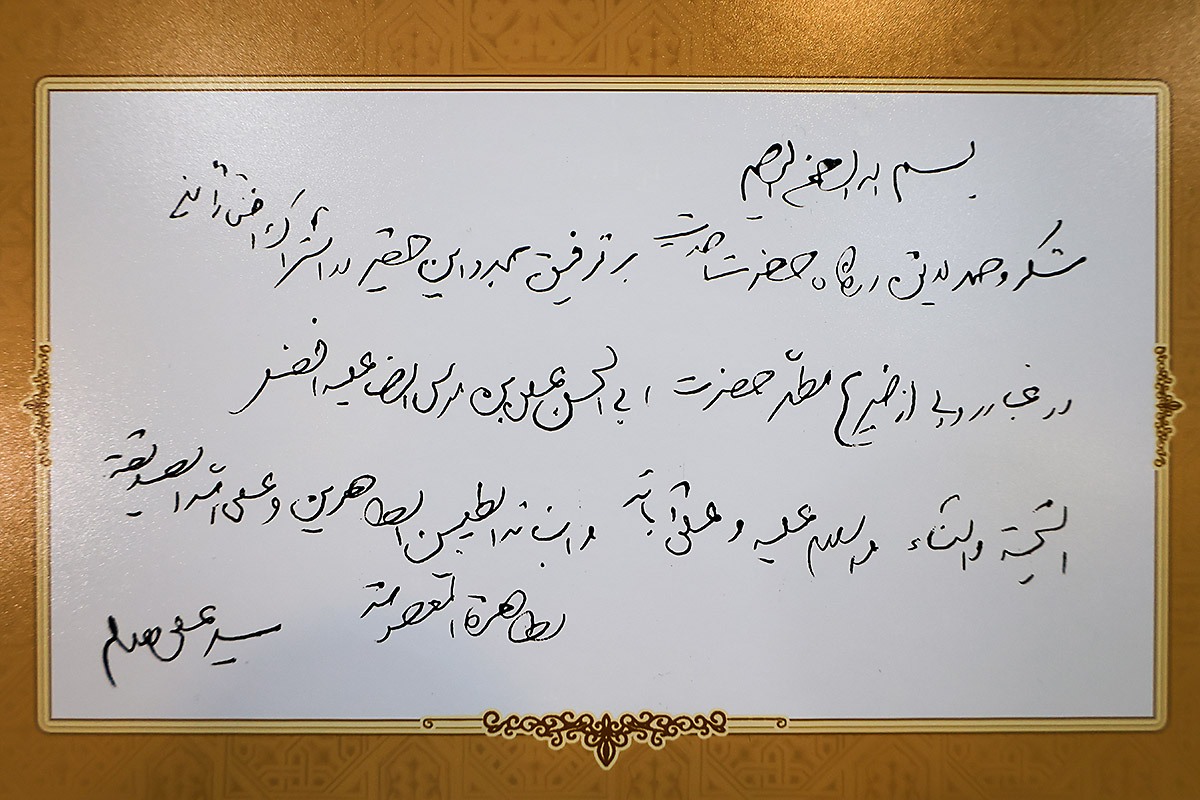 بسم الله الرحمن الرحیم
شکر و حمد لایق درگاه حضرت احدیت بر توفیق مجدد این حقیر در اشتراک افتخارآفرین
در غبارروبی از ضریح مطهّر حضرت ابی الحسن علی بن موسی الرضا علیه افضل
التحیّة والثناء والسلام علیه و علی آبائه وابنائه الطیبین الطاهرین و علی امّه الصدیقة
الطاهرة المعصومة
سید علی